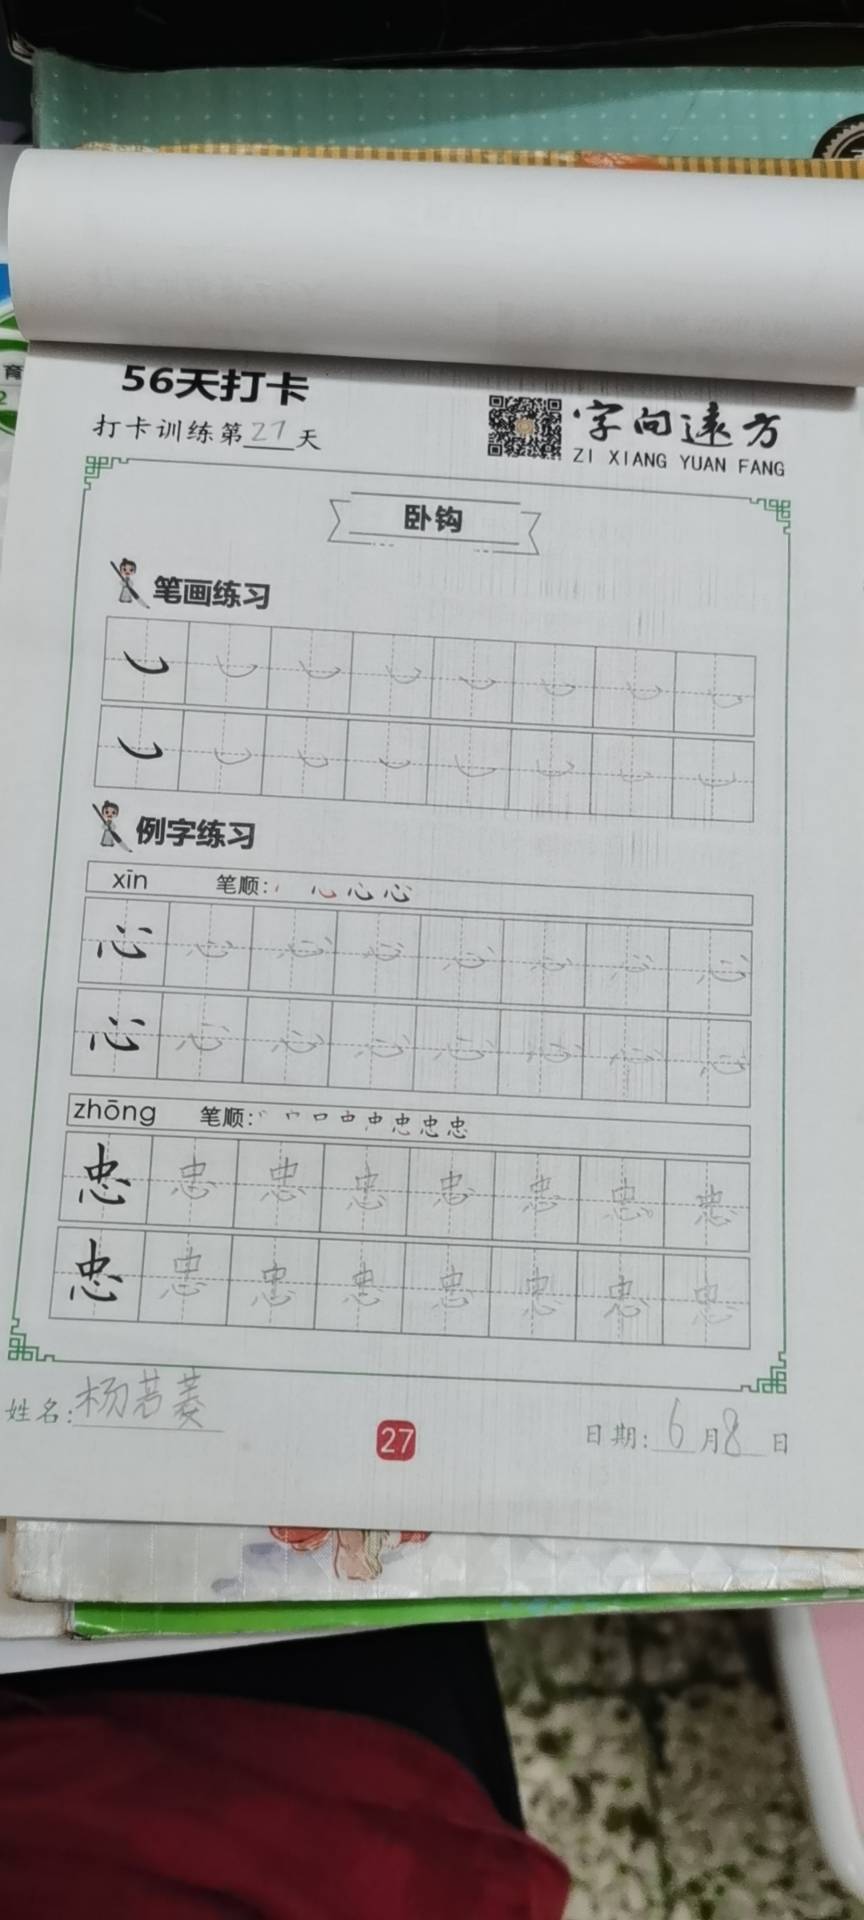 育
2
56天打卡
打卡训练第27天
字向远方
ZI XIANG YUAN FANG
卧钩
笔画练习
例字练习
xīn 笔顺: 心 心
心 心 心 心 心 心 心 心
心 心 心 心 心 心 心 心
zhōng 笔顺: 口 中 忠 忠 忠
忠 忠 忠 忠 忠 忠 忠 忠
忠 忠 忠 忠 忠 忠 忠 忠
姓名:杨若菱
27
日期:6月8日